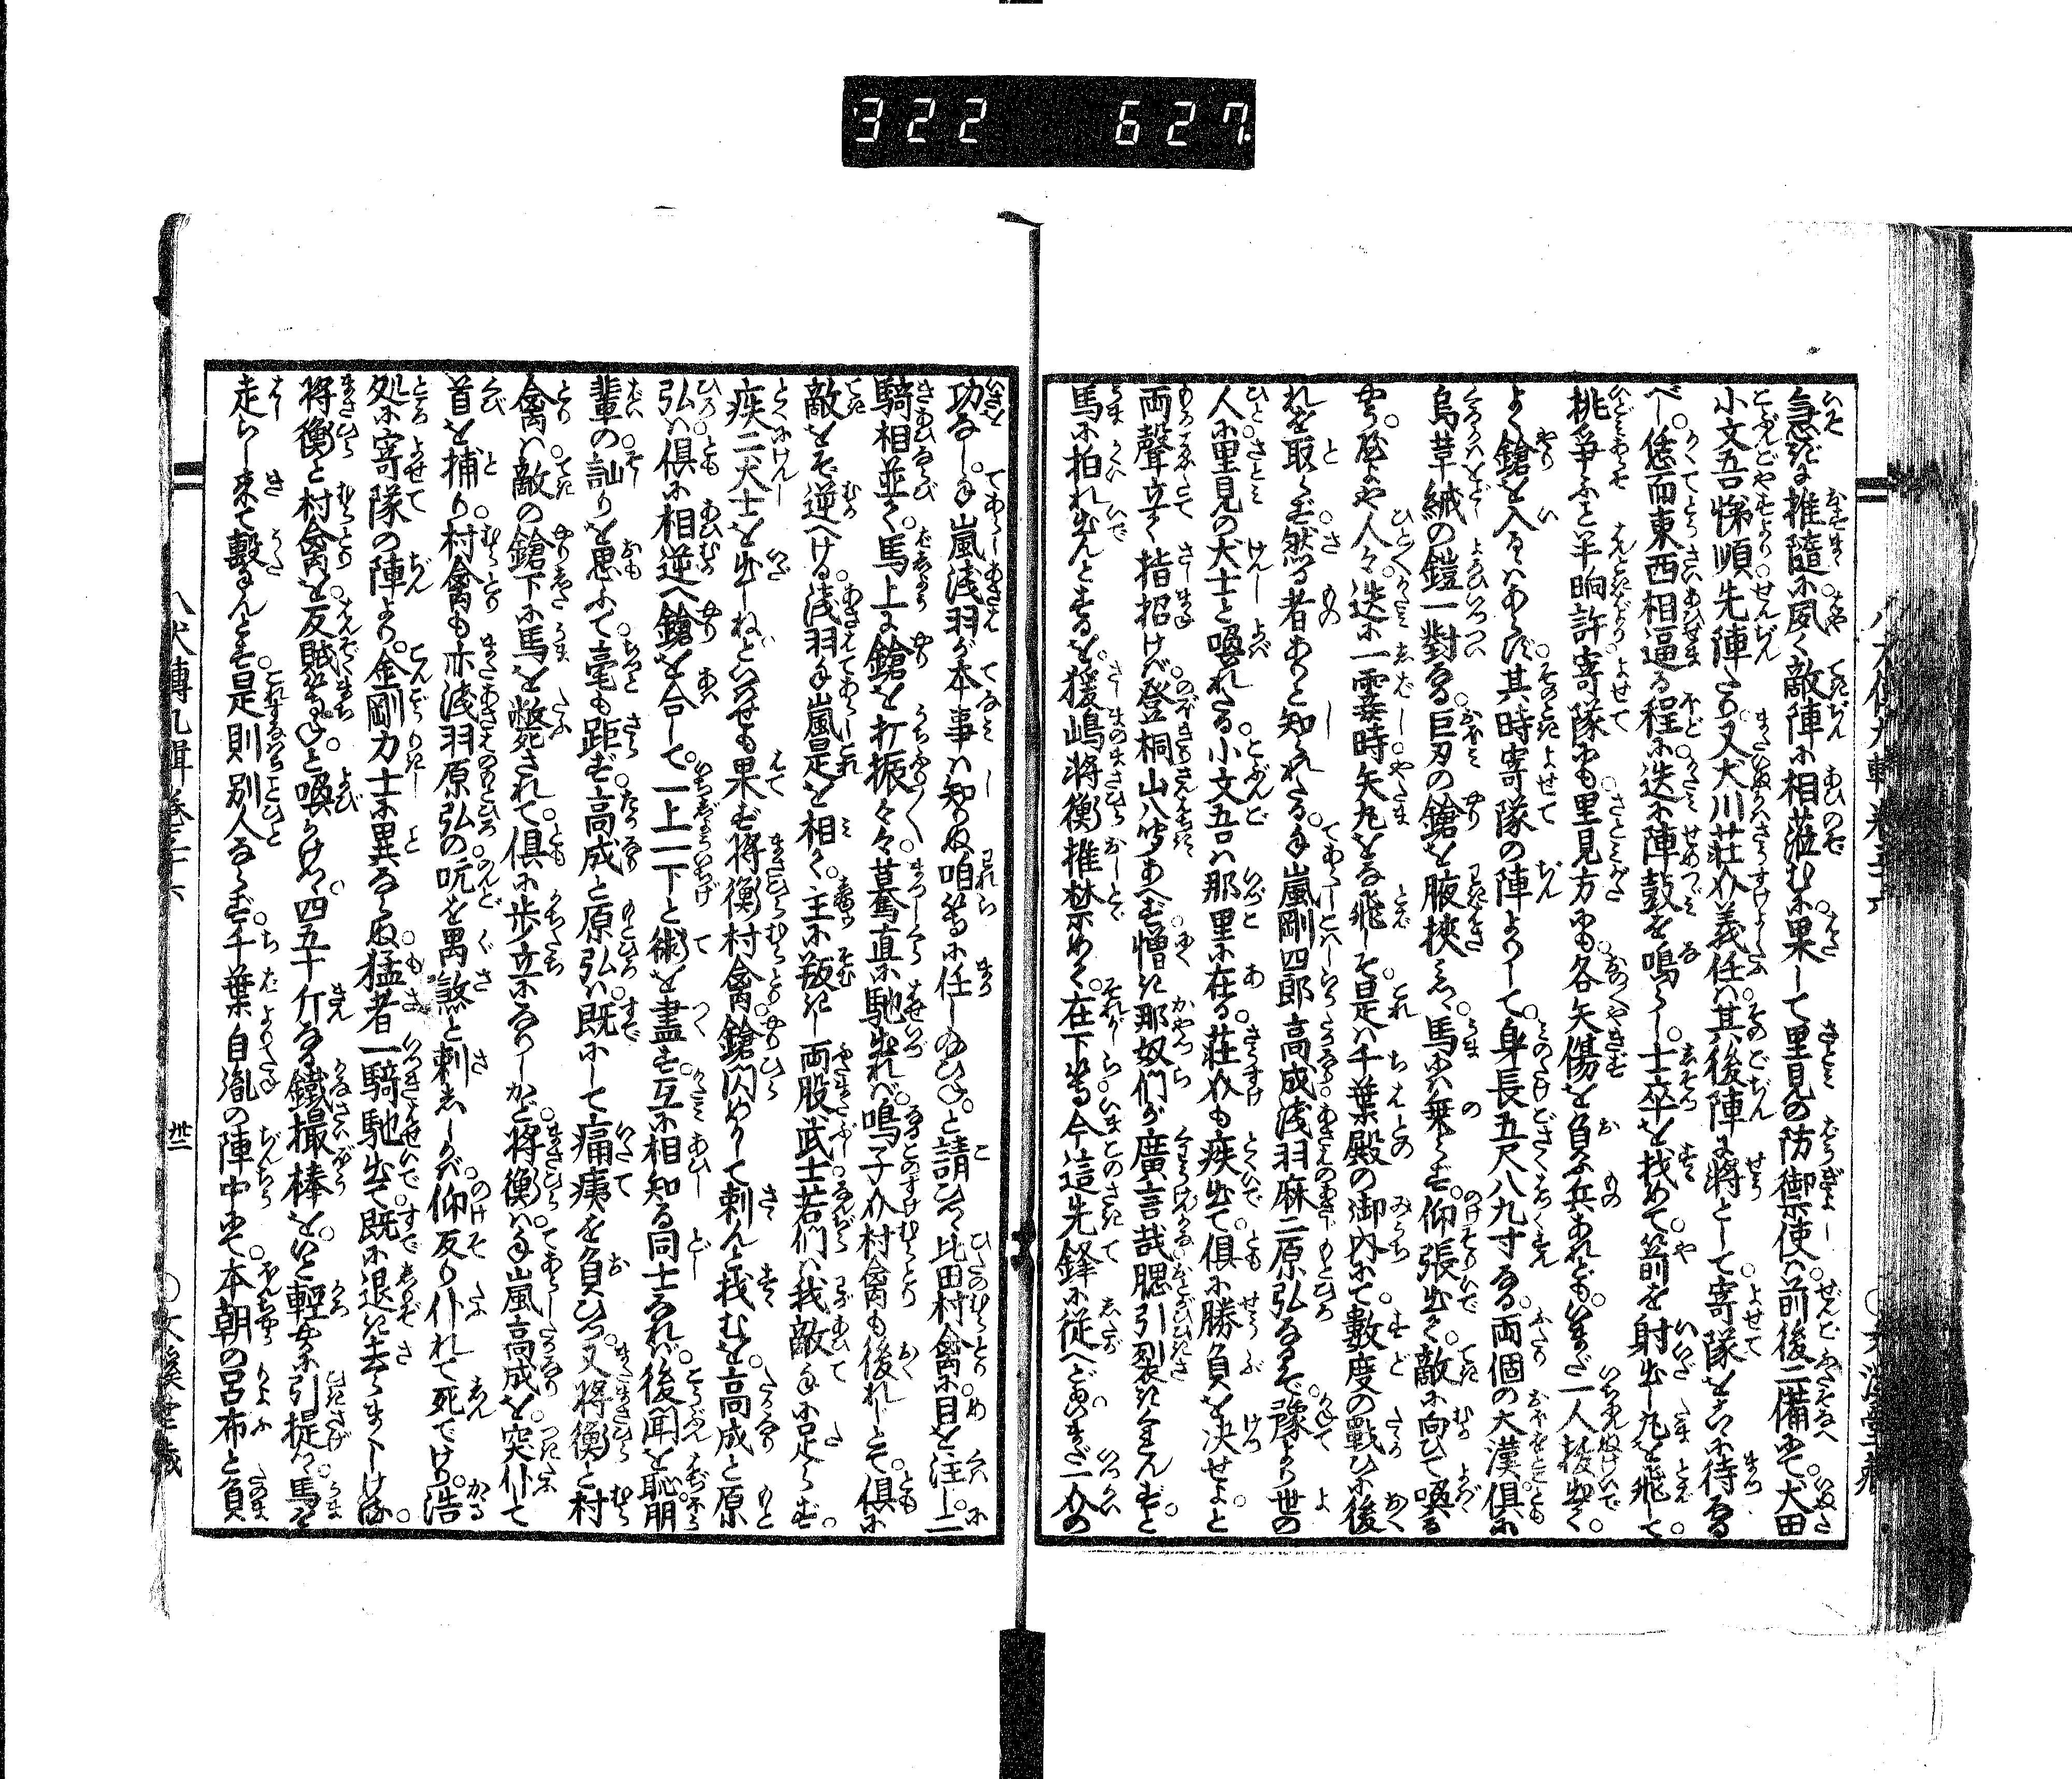 322 627
急ぎに推隨ふ夙く敵陣ふ相莅む小果して里見の防御禦使ハ前後二備ゆて犬田
小文吾悌順先陣たり又犬川荘介義任ハ其後陣よ將として寄隊を待ゐる
べし恁而東西相逼る程小迭小陣鼓を鳴らし士卒を找めて箭を射出し丸を飛して
挑爭ふと半晌許寄隊にも里見方にも各矢傷を負ふ兵あれどもいまだ一人殺出て
よく鎗を入るゝハあらず其時寄隊の陣よりして身長五尺八九寸なる両個の大漢俱に
烏草縅の鎧一對なる巨刃の鎗を腋挾ミて馬にハ乗らず仰張出て敵に向ひて喚る
やう聴よや人々迭に一霎時矢丸をな飛しそ是ハ千葉殿の御内にて數度の戰ひに後
れを取らず然る者ありと知られたる手嵐剛四郎高成浅羽麻二原弘なるぞ豫より世の
人に里見の犬士と喚れたる小文吾ハ那里に在る荘介も疾出て俱に勝負を决せよと
両聲立て指招けバ登桐山八咲あへず憎き那奴們が廣言哉腮引裂きくれんずと
馬に拍れ出んとするを猨嶋將衡推禁めて在下等今這先鋒に従へどもいまだ一介の
功なし手嵐浅羽が本事ハ知りぬ咱等に任し給ひねと請つゝ比田村禽に目を注し二
騎相並て馬上に鎗を打振々々驀直に馳出れバ鳴子介村禽も後れじとぞ俱に
敵をぞ逆へける浅羽手嵐是を相て主に叛きし両股武士若們ハ我敵手に足らず
疾二犬士を出しねといハせも果ず將衡村禽鎗閃めかして刺んと找むを高成と原
弘ハ俱に相逆へ鎗を合して一上一下と術を盡す互に相知る同士なれバ後聞を恥朋
輩の訕りを思ふて毫も距ず高成と原弘ハ既にして痛痍を負ひつ又將衡と村
禽ハ敵の鎗下に馬を斃されて俱に歩立になりしかど將衡ハ手嵐高成を突仆て
首を捕り村禽も亦浅羽原弘の吭を禺煞と刺ししかバ仰反り仆れて死でけり浩
処に寄隊の陣より金剛力士に異ならぬ猛者一騎馳出て既に退き去らまくしける
將衡と村禽を反賊等まてと喚かけつゝ四五十斤なる鐵撮棒をいと輕やかに引提つ馬を
走らし来て轂んとす是則別人ならず千葉自胤の陣中にて本朝の呂布と負
八犬傳九輯卷三十六 卅二 ○文溪堂藏